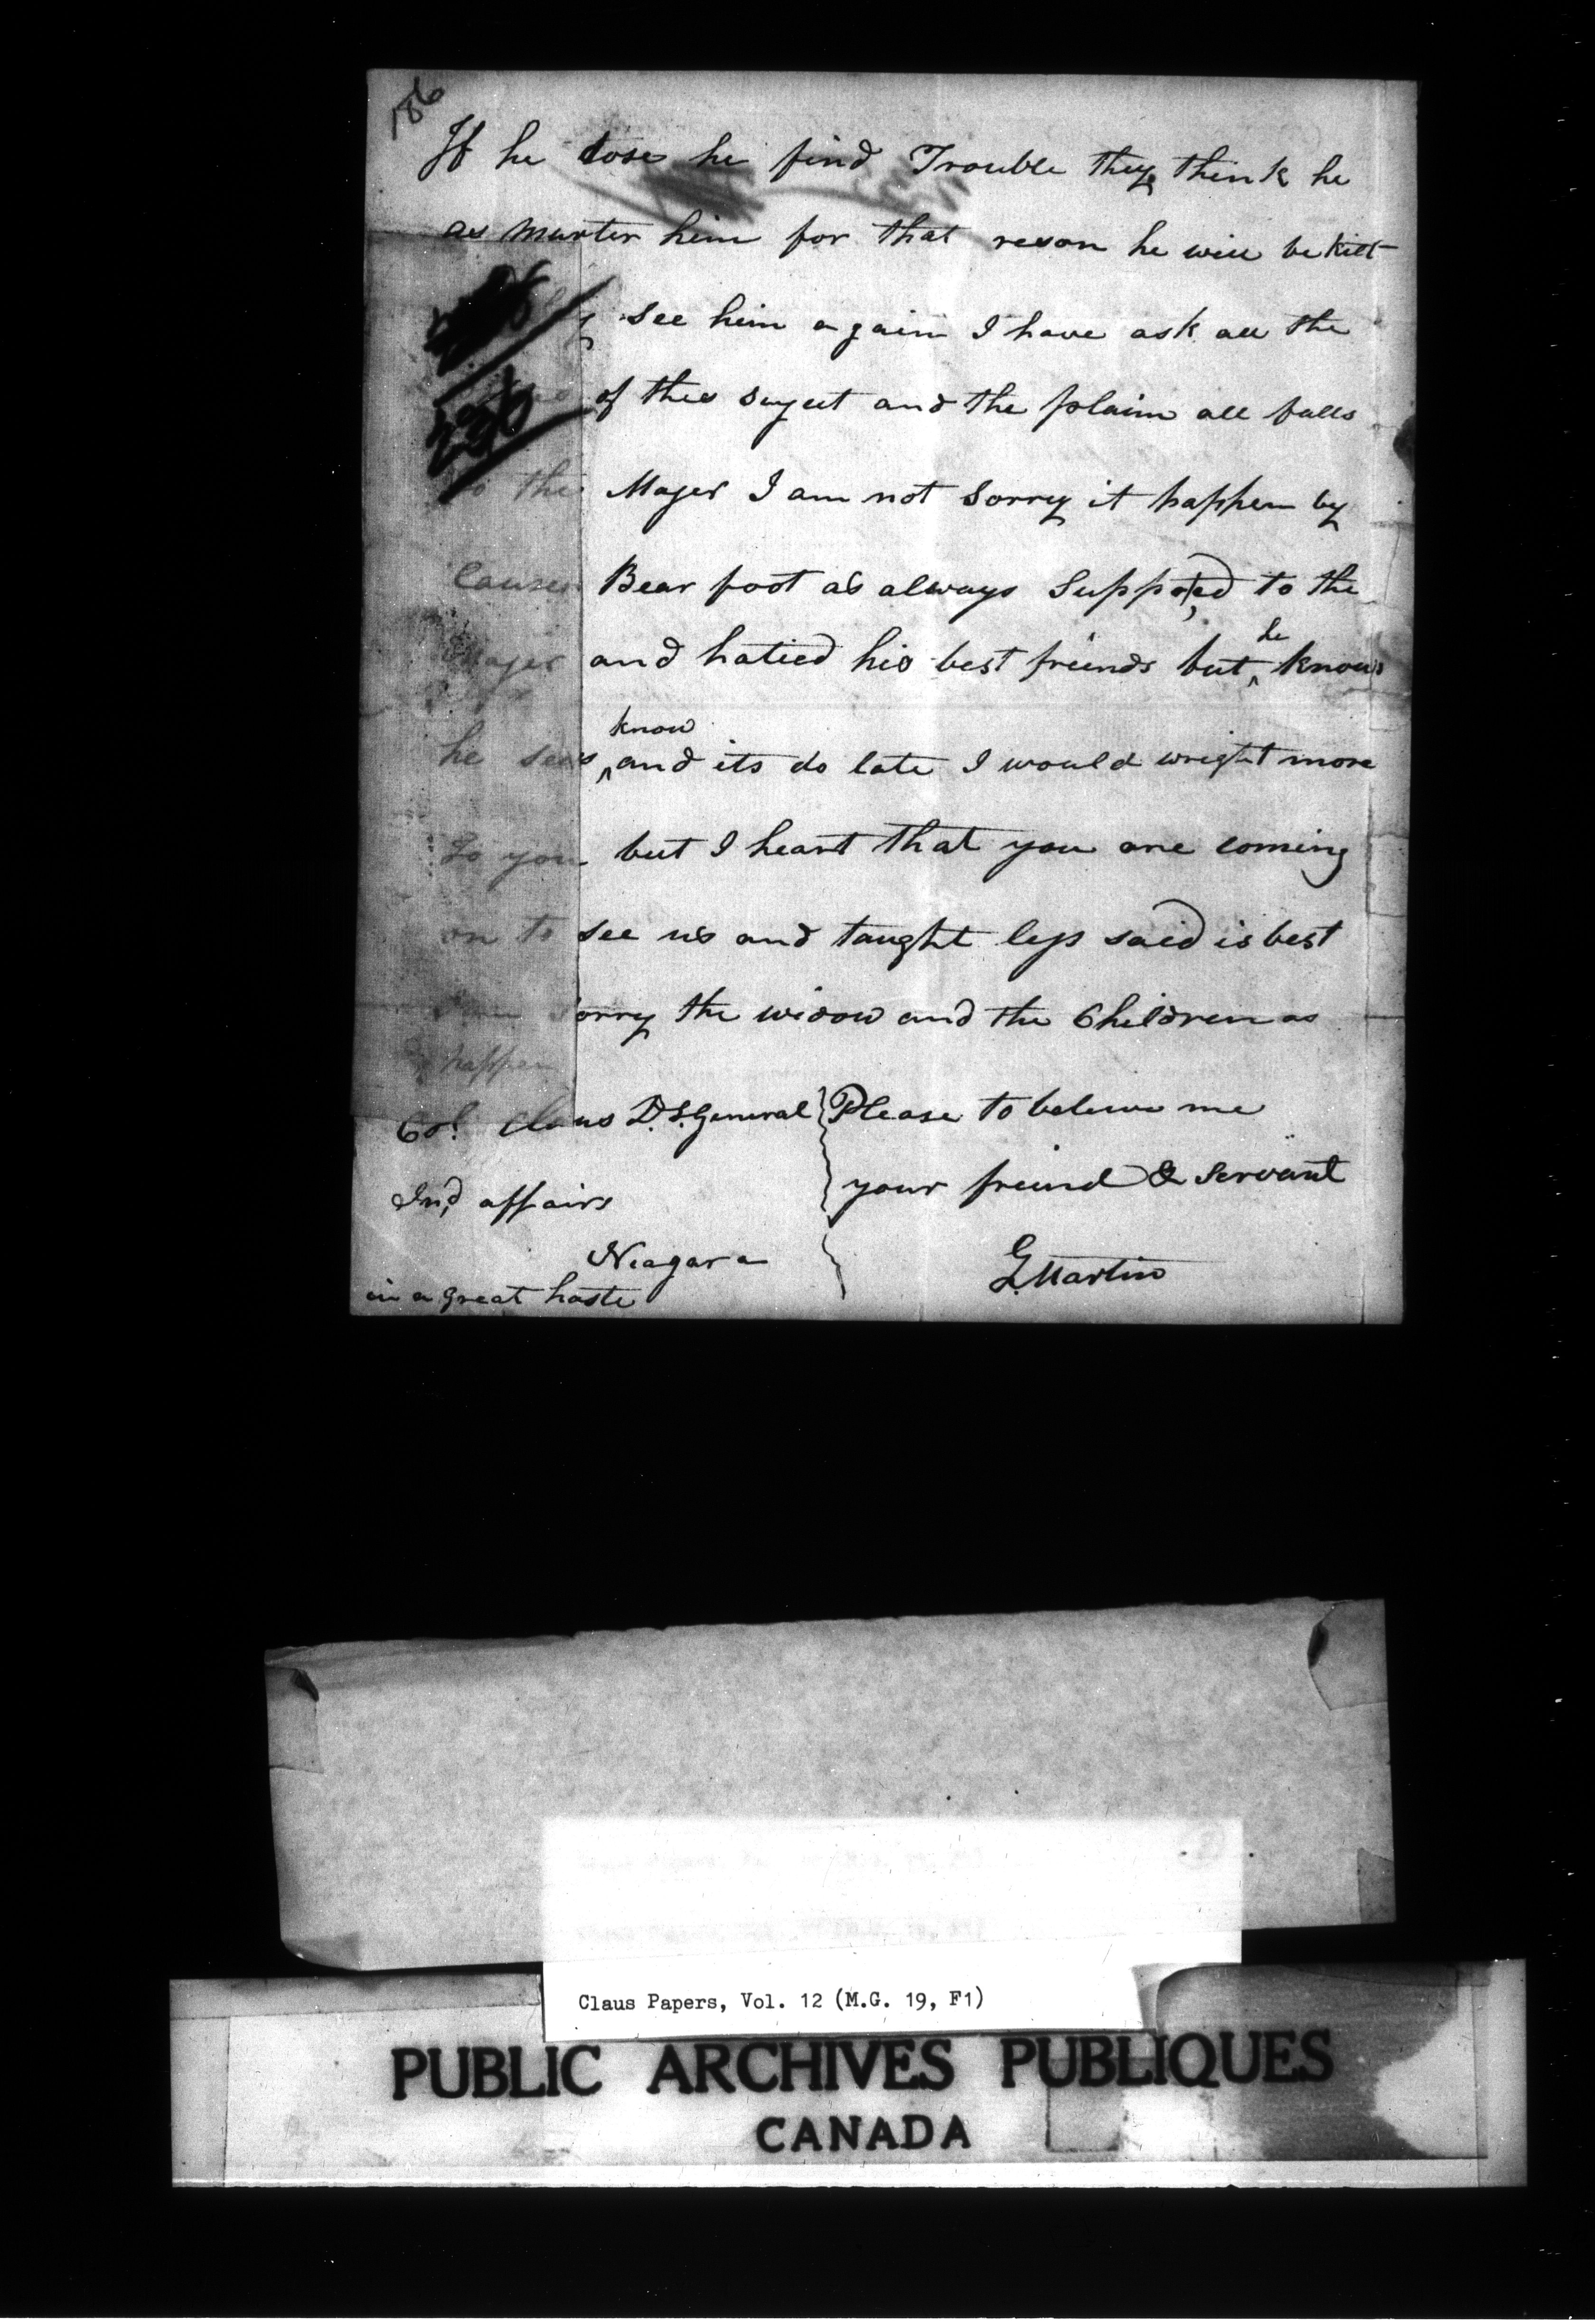 186
If he dose he find Trouble they think he
as murter him for that reson he will be kilt
see him again I have ask all the
of thes sujeet and the plaim all falls
to the Majer I am not Sorry it happen by
cause Bear foot as always Supported to the
Majer and hatied his best friends but he knows
he sees know and its do late I would wright more
to you but I heart that you are coming
on to see us and taught less said is best
sorry the widow and the Children as
happen
Col. Claus D.S.General
Ind affairs
Niagara
in a great haste
Please to beleive me
your freind & Servant
G. Martin
Claus Papers, Vol. 12 (M.G. 19, F1)
PUBLIC ARCHIVES PUBLIQUES
CANADA